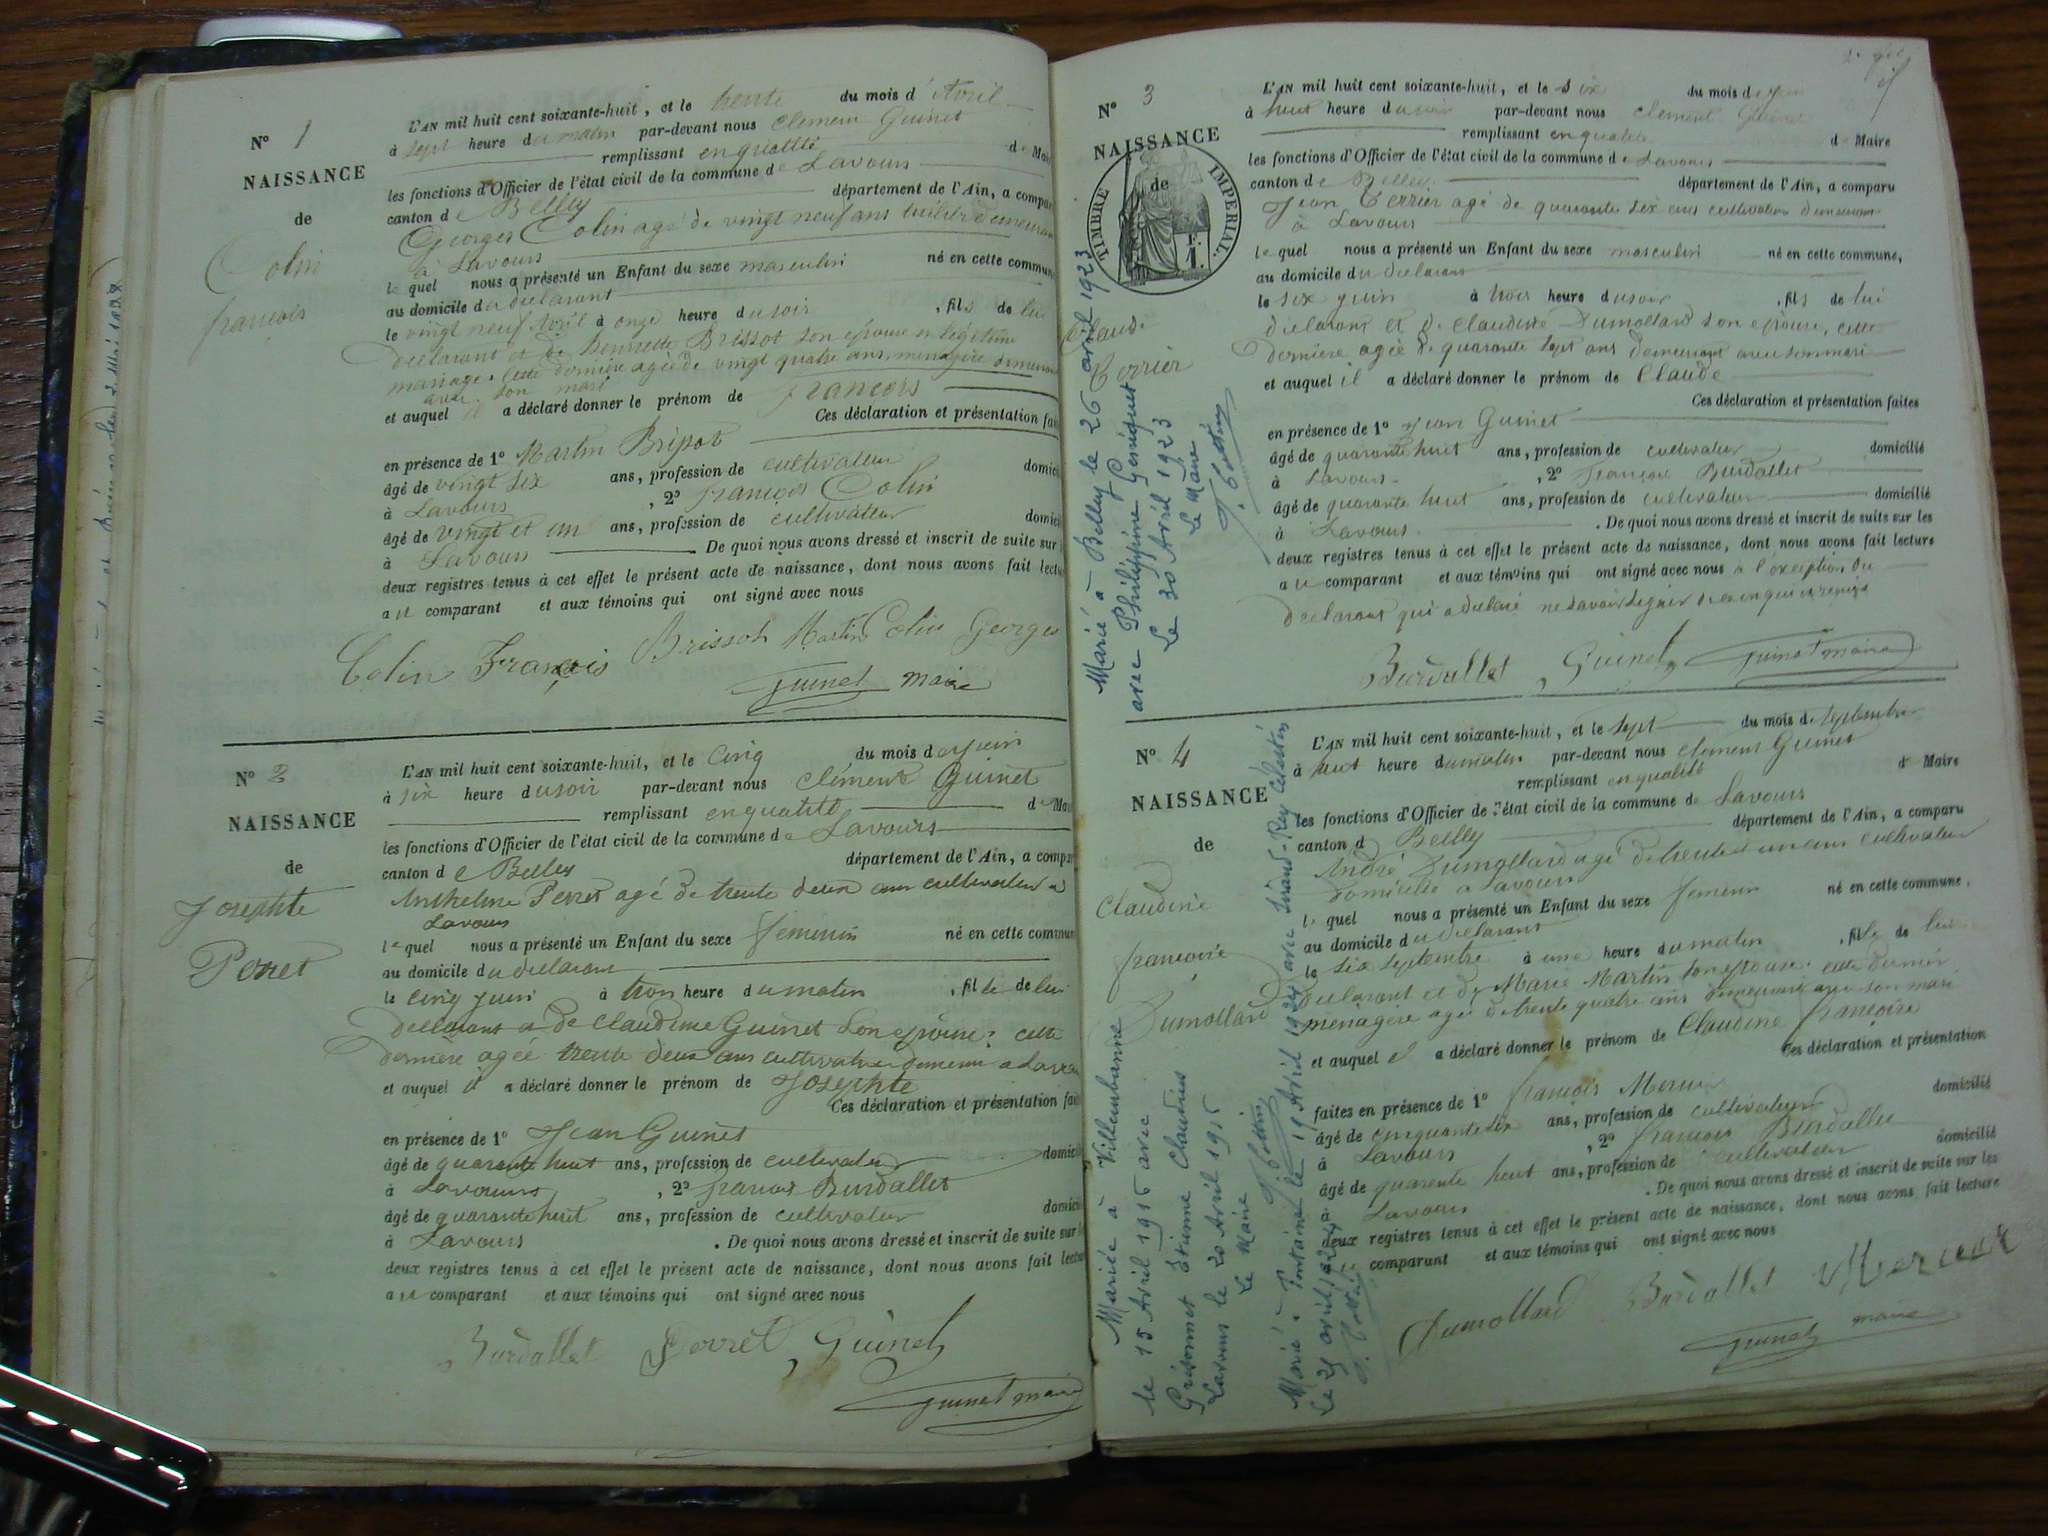 N° 1
NAISSANCE
de
Colin
françois
L'AN mil huit cent soixante-huit, et le trente du mois d'Avril
à sept heure du matin par-devant nous Clément Guinet
remplissant en qualité de Maire
les fonctions d'Officier de l'état civil de la commune de Lavours
canton de Belley département de l'Ain, a comparu
Georges Colin agé de vingt neuf ans demeurant
à Lavours
le quel nous a présenté un Enfant du sexe masculin né en cette commune
au domicile du déclarant
le vingt neuf avril à onze heure du soir, fils de lui
déclarant et de Brissot son épouse en légitime
mariage. Cette dernière agée de vingt quatre ans ménagère demeurant
avec son mari
et auquel il a déclaré donner le prénom de françois
Ces déclaration et présentation fai
en présence de 1° Martin Brissot
âgé de vingt six ans, profession de cultivateur domicil
à Lavours, 2° françois Colin
âgé de vingt et un ans, profession de cultivateur domicil
à Lavours. De quoi nous avons dressé et inscrit de suite sur
deux registres tenus à cet effet le présent acte de naissance, dont nous avons fait lectu
au comparant et aux témoins qui ont signé avec nous
Colin François Brissot Martin Colin Georges
Guinet maire
N° 2
NAISSANCE
de
Josephte
Perret
L'AN mil huit cent soixante-huit, et le cinq du mois de juin
à six heure du soir par-devant nous Clément Guinet
remplissant en qualité de Mai
les fonctions d'Officier de l'état civil de la commune de Lavours
canton de Belley département de l'Ain, a compar
Anthelme Perret agé de trente deux ans cultivateur à
Lavours
le quel nous a présenté un Enfant du sexe féminin né en cette commun
au domicile du déclarant
le cinq juin à trois heure du matin, fille de lui
déclarant et de Claudine Guinet son épouse, cette
dernière agée trente deux ans cultivatrice à Lavours
et auquel il a déclaré donner le prénom de Josephte
Ces déclaration et présentation fai
en présence de 1° Jean Guinet
âgé de quarante huit ans, profession de cultivateur domicil
à Lavours, 2° françois Burdallet
âgé de quarante huit ans, profession de cultivateur domicil
à Lavours. De quoi nous avons dressé et inscrit de suite sur
deux registres tenus à cet effet le présent acte de naissance, dont nous avons fait lectu
au comparant et aux témoins qui ont signé avec nous
Burdallet Perret Guinet
Guinet maire
N° 3
NAISSANCE
de
TIMBRE IMPERIAL
1 F.
Claude
Terrier
Marié à Belley le 26 avril 1923
avec Philippine Genique
Le 30 Avril 1923
Le Maire
L'AN mil huit cent soixante-huit, et le six du mois de juin
à huit heure du soir par-devant nous Clément Guinet
remplissant en qualité de Maire
les fonctions d'Officier de l'état civil de la commune de Lavours
canton de Belley département de l'Ain, a comparu
Jean Terrier agé de quarante six ans cultivateur demeurant
à Lavours
le quel nous a présenté un Enfant du sexe masculin né en cette commune,
au domicile du déclarant
le six juin à trois heure du soir, fils de lui
déclarant et de Claudine Dumollard son épouse, cette
dernière agée de quarante sept ans demeurant avec son mari
et auquel il a déclaré donner le prénom de Claude
Ces déclaration et présentation faites
en présence de 1° Jean Guinet
âgé de quarante huit ans, profession de cultivateur domicilié
à Lavours, 2° françois Burdallet
âgé de quarante huit ans, profession de cultivateur domicilié
à Lavours. De quoi nous avons dressé et inscrit de suite sur les
deux registres tenus à cet effet le présent acte de naissance, dont nous avons fait lecture
au comparant et aux témoins qui ont signé avec nous à l'exception du
déclarant qui a déclaré ne savoir signer de ce enquis requis
Burdallet Guinet Guinet maire
N° 4
NAISSANCE
de
Claudine
françoise
Dumollard
Mariée à Villeurbanne
le 15 Avril 1915 avec
Grisonnet Etienne Claudius
Lavours le 20 Avril 1915
Le Maire
Marié à Fontaine le 19 Avril 1924 avec Rey Célestin
Le 24 avril 1924
L'AN mil huit cent soixante-huit, et le sept du mois de septembre
à huit heure du matin par-devant nous Clément Guinet
remplissant en qualité de Maire
les fonctions d'Officier de l'état civil de la commune de Lavours
canton d Belley département de l'Ain, a comparu
André Dumollard agé de trente et un ans cultivateur
domicilié à Lavours
le quel nous a présenté un Enfant du sexe féminin né en cette commune,
au domicile du déclarant
le six septembre à une heure du matin, fille de lui
déclarant et de Marie Martin son épouse. cette dernière
ménagère agée de trente quatre ans demeurant avec son mari
et auquel il a déclaré donner le prénom de Claudine françoise
Ces déclaration et présentation
faites en présence de 1° françois Mercier domicilié
âgé de cinquante six ans, profession de cultivateur
à Lavours, 2° françois Burdallet
âgé de quarante huit ans, profession de cultivateur domicilié
Lavours. De quoi nous avons dressé et inscrit de suite sur les
deux registres tenus à cet effet le présent acte de naissance, dont nous avons fait lecture
comparant et aux témoins qui ont signé avec nous
Dumollard Burdallet Mercier
Guinet maire